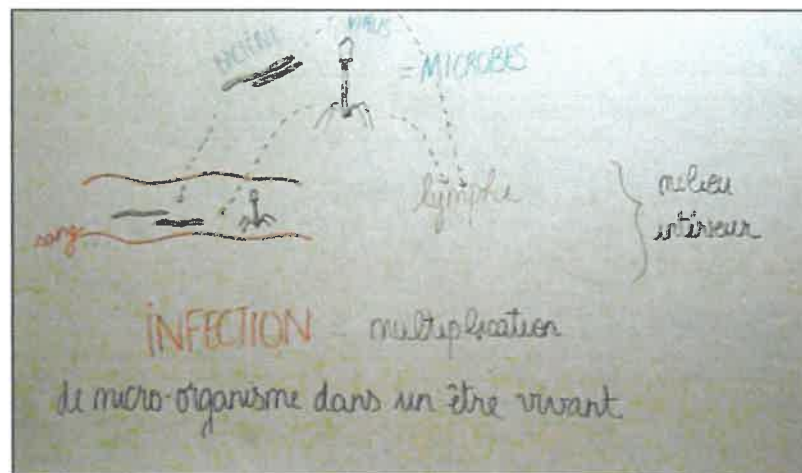 VIRUS
= MICROBES
lymphe
milieu
intérieur
sang
INFECTION = multiplication
de micro-organisme dans un être vivant